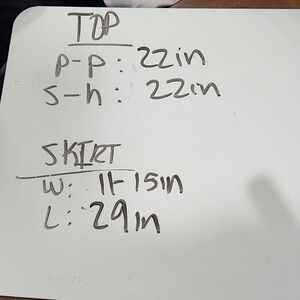 TOP
P-P: 22in
S-h: 22in
SKIRT
W: 11-15in
L: 29in